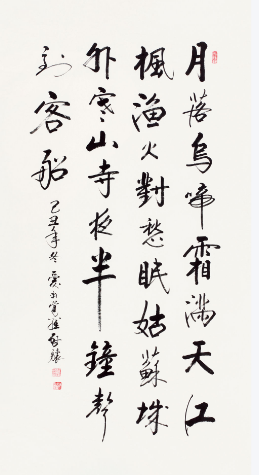 月落烏啼霜滿天江
楓漁火對愁眠姑蘇城
外寒山寺夜半鐘聲
到客船
己丑年冬